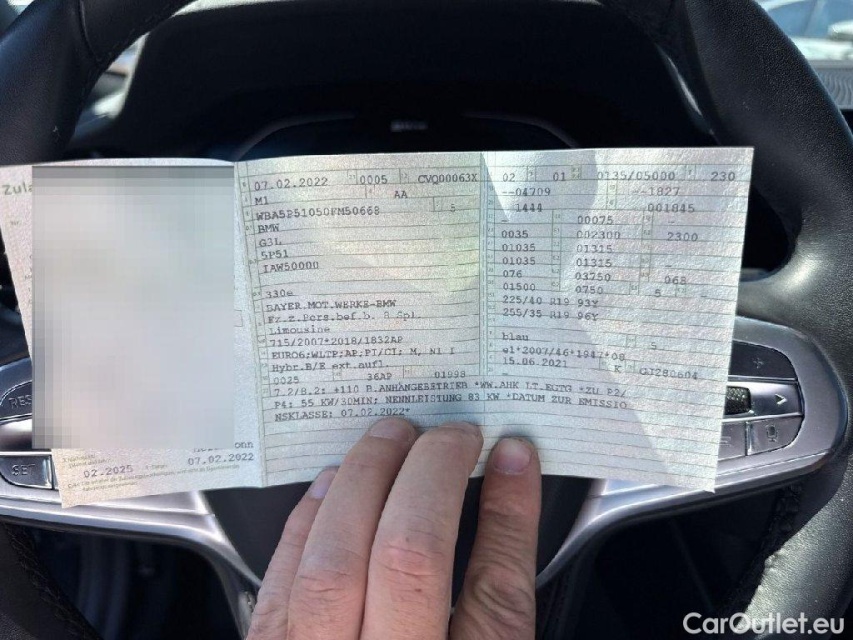 Zula
07.02.2022 0005 CVQ00063X
M1 AA
WBA5P51050FM50668 5
BMW
G3L
5P51
IAW50000
330e
BAYER.MOT.WERKE-BMW
Fz.z.Pers.bef.b. 8 Spl.
Limousine
715/2007*2018/1832AP
EURO6;WLTP;AP;PI/CI; M, N1 I
Hybr.B/E ext.aufl.
0025 36AP 01998
02 01 0135/05000 230
--04709 --1827
1444 001845
00075
0035 002300 2300
01035 01315
01035 01315 -
076 03750 068
01500 0750 5
225/40 R19 93Y
255/35 R19 96Y
5
blau
e1*2007/46*1947*08
15.06.2021 K GJ280604
7.2/8.2: +110 B.ANHÄNGEBETRIEB *WW.AHK LT.EGTG *ZU P2/
P4: 55 KW/30MIN; NENNLEISTUNG 83 KW *DATUM ZUR EMISSIO
NSKLASSE: 07.02.2022*
02.2025
07.02.2022
RES
SET
CarOutlet.eu